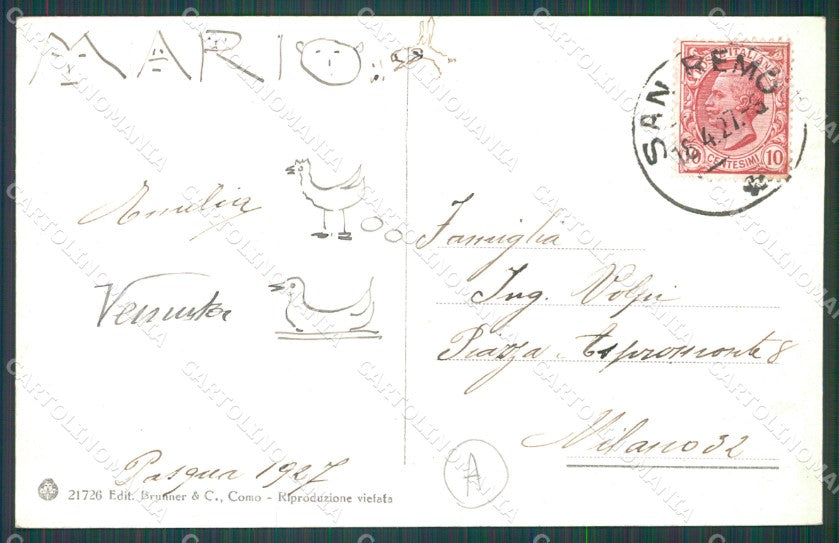 MARIO
SAN REMO
POSTE ITALIANE
16.4.27.
10 CENTESIMI 10
Amelia
Famiglia
Venusta
Ing. Volpi
Piazza Aspromonte 8
Milano 32
Pasqua 1927
A
21726 Edit. Brunner & C., Como - Riproduzione vietata
CARTOLINOMANIA